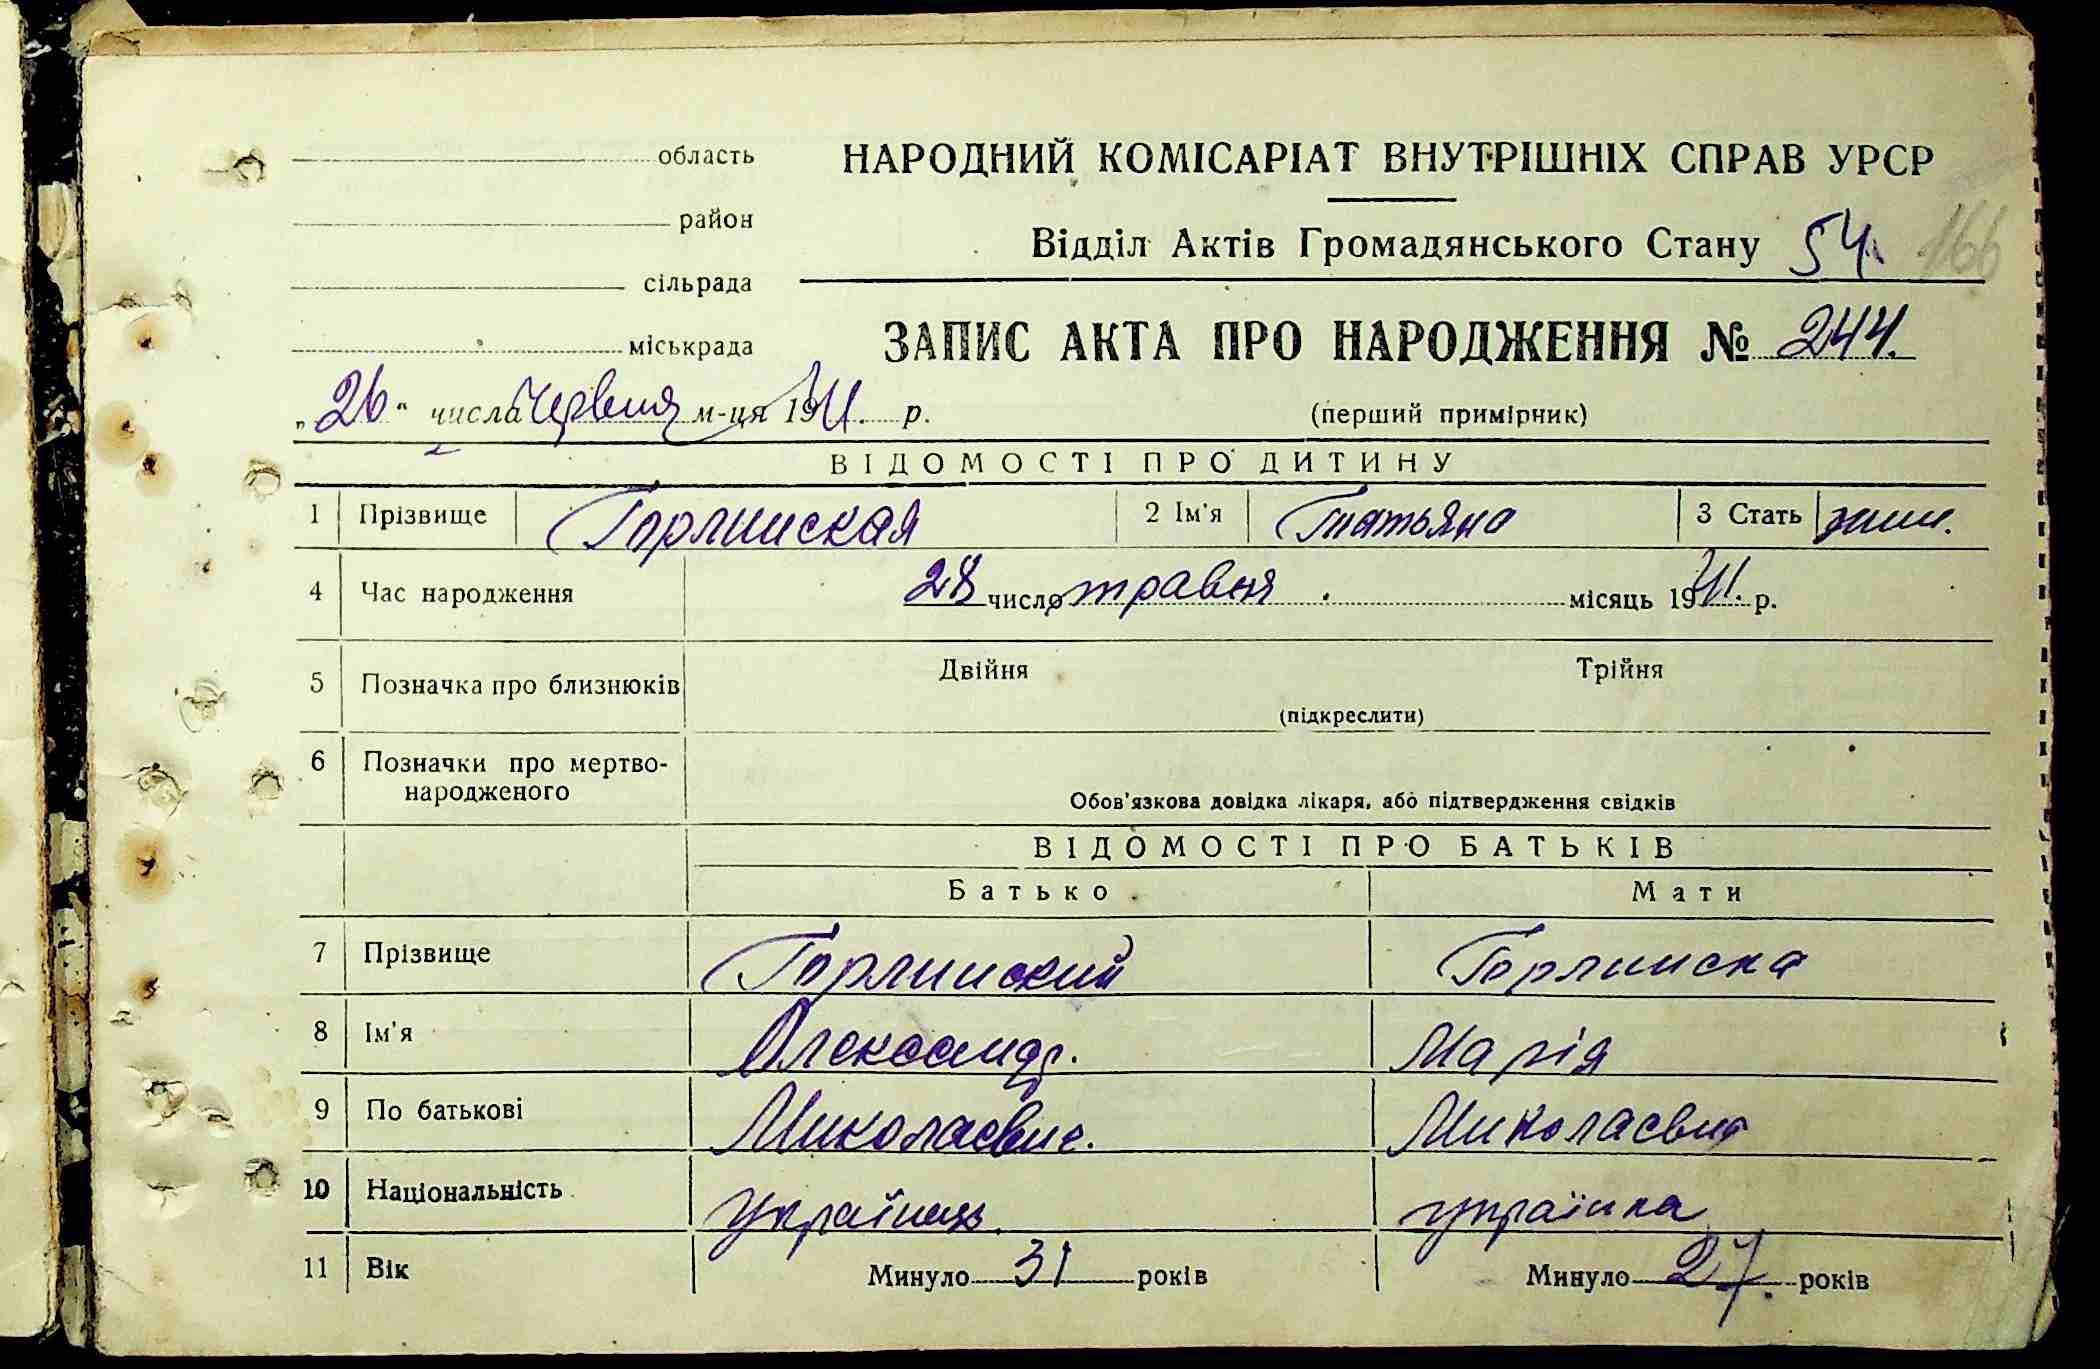 область
НАРОДНИЙ КОМІСАРІАТ ВНУТРІШНІХ СПРАВ УРСР
район
Відділ Актів Громадянського Стану 54. 166
сільрада
ЗАПИС АКТА ПРО НАРОДЖЕННЯ № 244.
міськрада
„26" числа Червня м-ця 1941. р.
(перший примірник)
ВІДОМОСТІ ПРО ДИТИНУ
1 Прізвище Горлинская 2 Ім'я Татьяна 3 Стать жин.
4 Час народження 28 число травня місяць 1941. р.
5 Позначка про близнюків Двійня Трійня
(підкреслити)
6 Позначки про мертво-
народженого
Обов'язкова довідка лікаря, або підтвердження свідків
ВІДОМОСТІ ПРО БАТЬКІВ
Батько Мати
7 Прізвище Горлинский Горлинска
8 Ім'я Александр. Марія
9 По батькові Миколаевич. Миколаевна
10 Національність українець українка
11 Вік Минуло 31 років Минуло 27. років